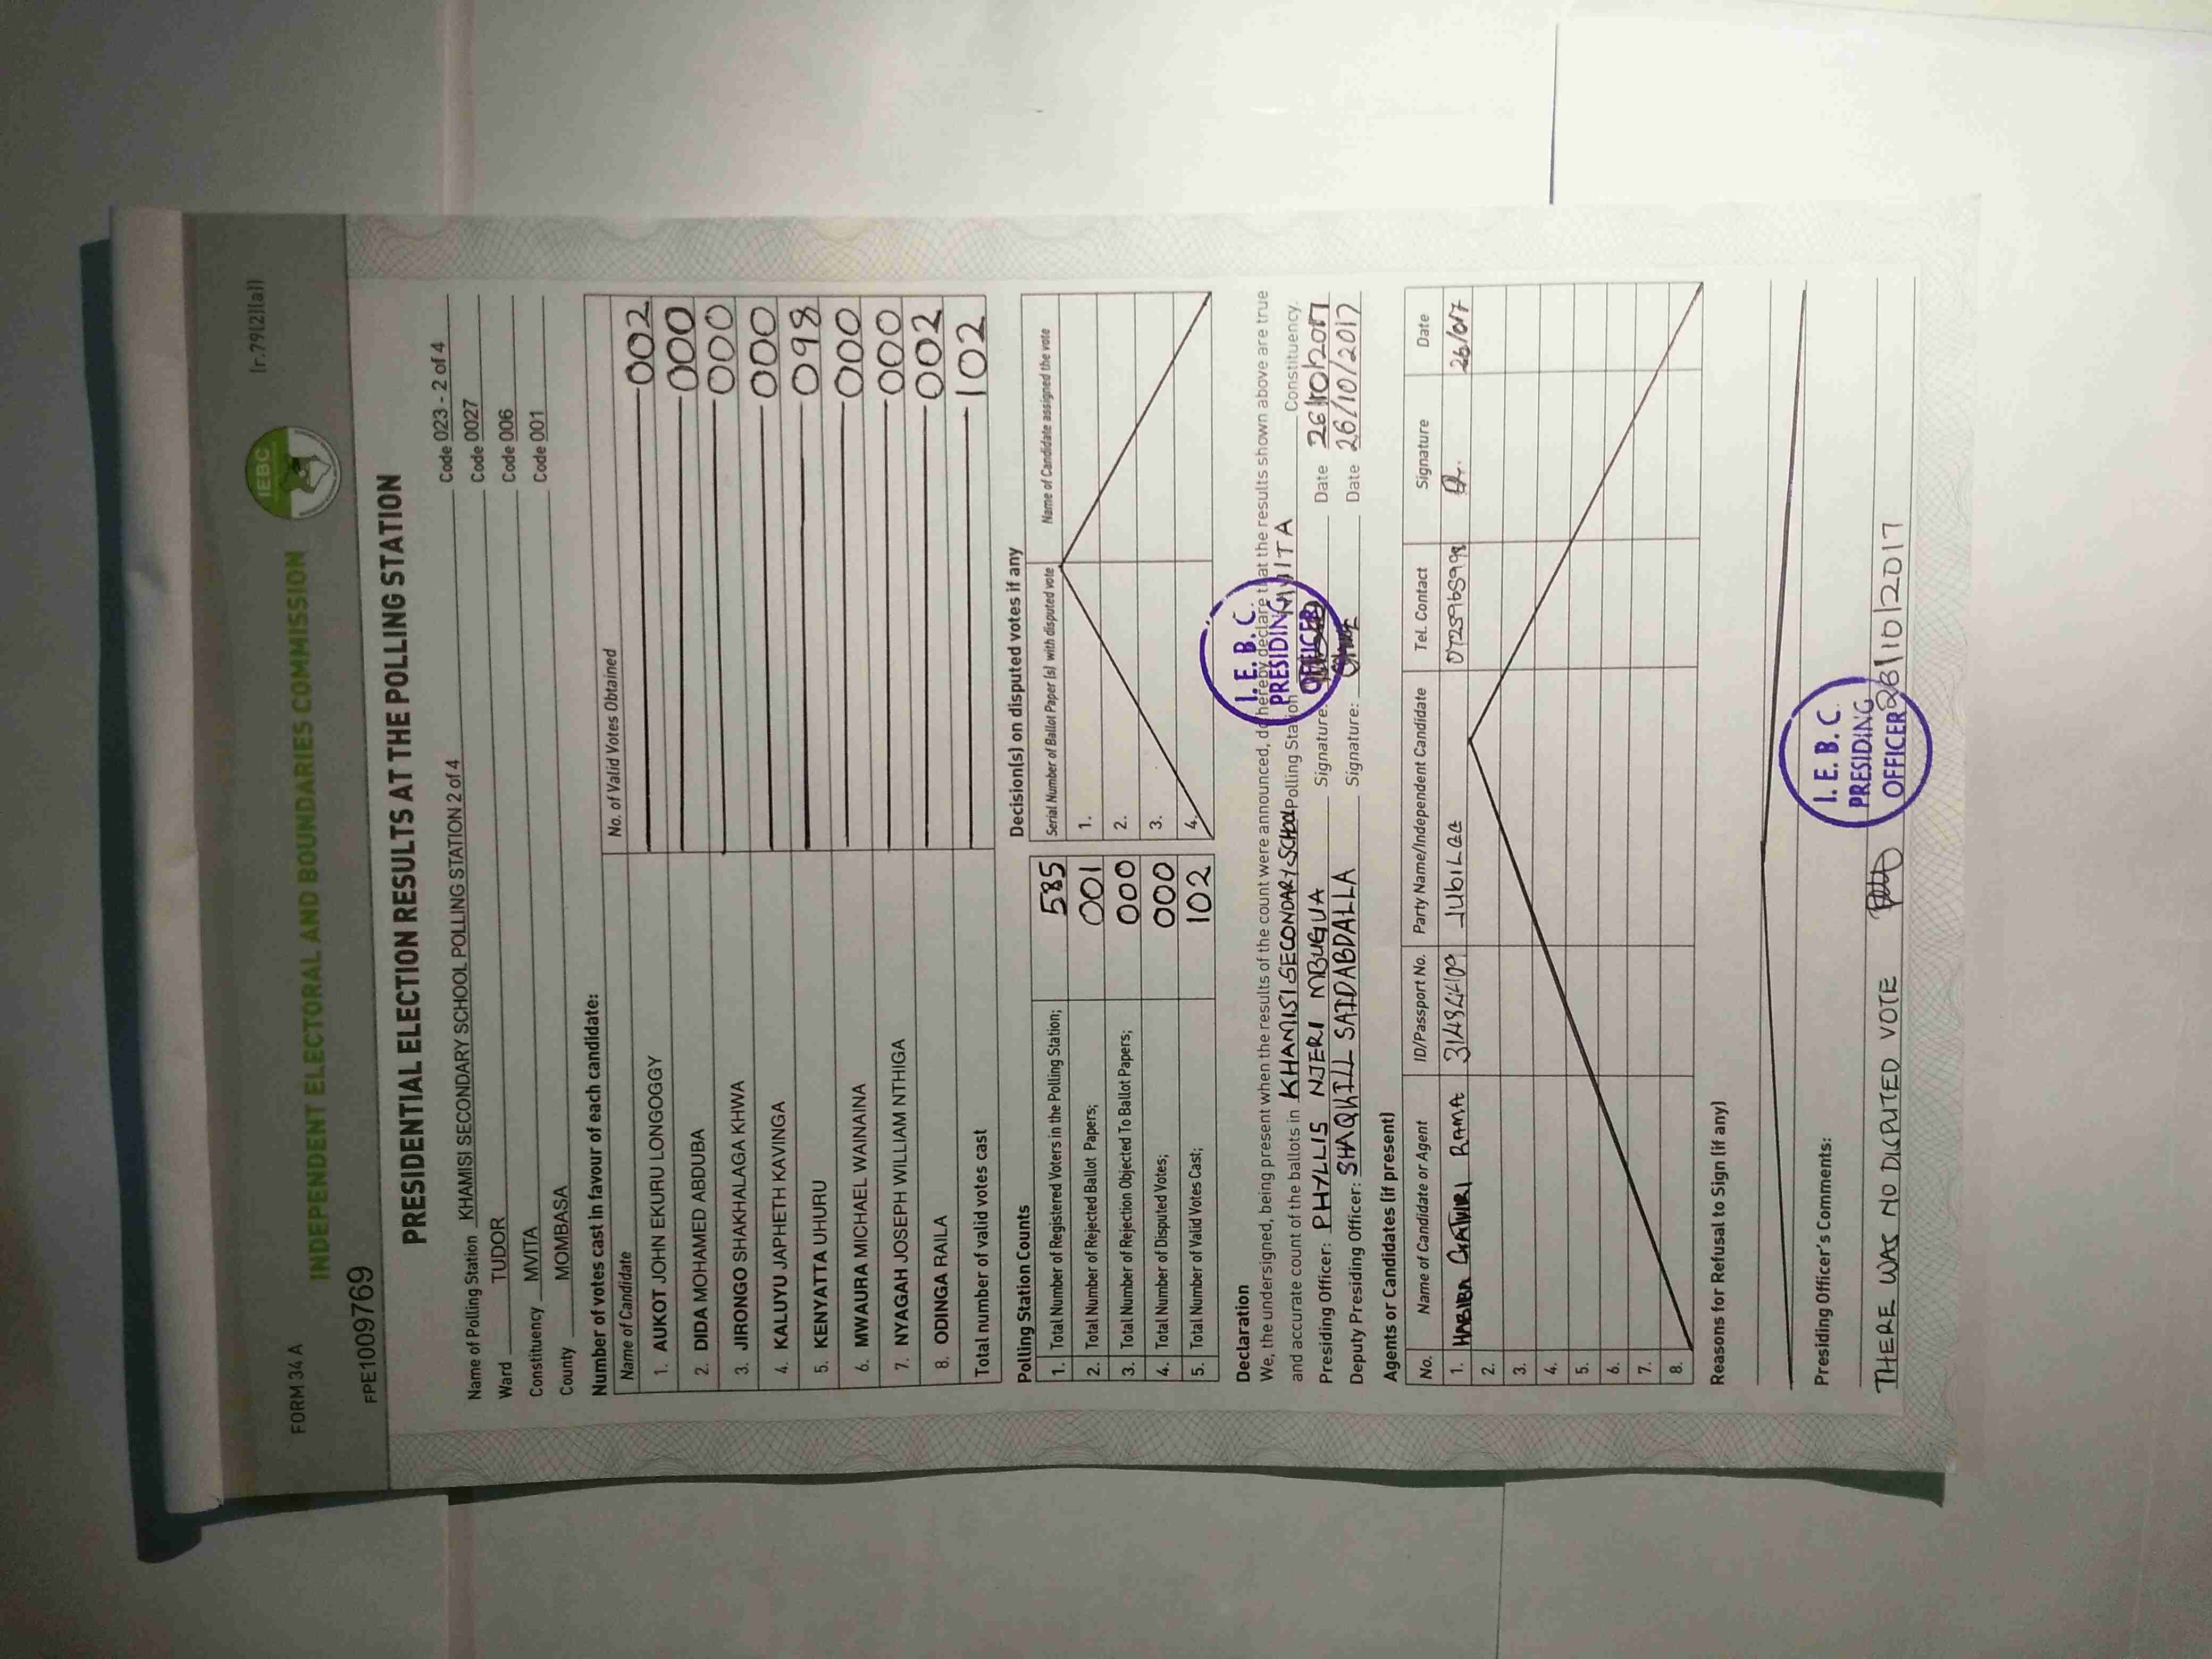 FORM 34 A
[r.79(2)(a)]
INDEPENDENT ELECTORAL AND BOUNDARIES COMMISSION
IEBC
FPE1009769
PRESIDENTIAL ELECTION RESULTS AT THE POLLING STATION
Name of Polling Station KHAMISI SECONDARY SCHOOL POLLING STATION 2 of 4 Code 023 - 2 of 4
Ward TUDOR Code 0027
Constituency MVITA Code 006
County MOMBASA Code 001
Number of votes cast in favour of each candidate:
Name of Candidate No. of Valid Votes Obtained
1. AUKOT JOHN EKURU LONGOGGY 002
2. DIDA MOHAMED ABDUBA 000
3. JIRONGO SHAKHALAGA KHWA 000
4. KALUYU JAPHETH KAVINGA 000
5. KENYATTA UHURU 098
6. MWAURA MICHAEL WAINAINA 000
7. NYAGAH JOSEPH WILLIAM NTHIGA 000
8. ODINGA RAILA 002
Total number of valid votes cast 102
Polling Station Counts
1. Total Number of Registered Voters in the Polling Station; 585
2. Total Number of Rejected Ballot Papers; 001
3. Total Number of Rejection Objected To Ballot Papers; 000
4. Total Number of Disputed Votes; 000
5. Total Number of Valid Votes Cast; 102
Decision(s) on disputed votes if any
Serial Number of Ballot Paper (s) with disputed vote Name of Candidate assigned the vote
1.
2.
3.
4.
Declaration
We, the undersigned, being present when the results of the count were announced, do hereby declare that the results shown above are true
and accurate count of the ballots in KHAMISI SECONDARY SCHOOL Polling Station MVITA Constituency.
Presiding Officer: PHYLLIS NJERI MBUGUA Signature: Date 26/10/2017
Deputy Presiding Officer: SHAQHILL SAIDABDALLA Signature: Date 26/10/2017
I. E. B. C.
PRESIDING
OFFICER
Agents or Candidates (if present)
No. Name of Candidate or Agent ID/Passport No. Party Name/Independent Candidate Tel. Contact Signature Date
1. HABIBA GATURI RAMA JUBILEE
2.
3.
4.
5.
6.
7.
8.
Reasons for Refusal to Sign (if any)
Presiding Officer's Comments:
THERE WAS NO DISPUTED VOTE 26/10/2017
I. E. B. C.
PRESIDING
OFFICER